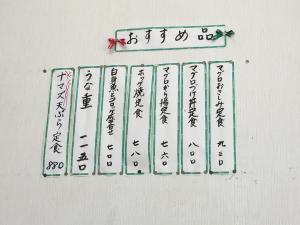 おすすめ品
マグロおさしみ定食 九三〇
マグロづけ丼定食 八〇〇
マグロから揚定食 七六〇
ホッケ焼定食 七八〇
白身魚 定食 七〇〇
うな重 一一五〇
ナマズ天ぷら定食 880